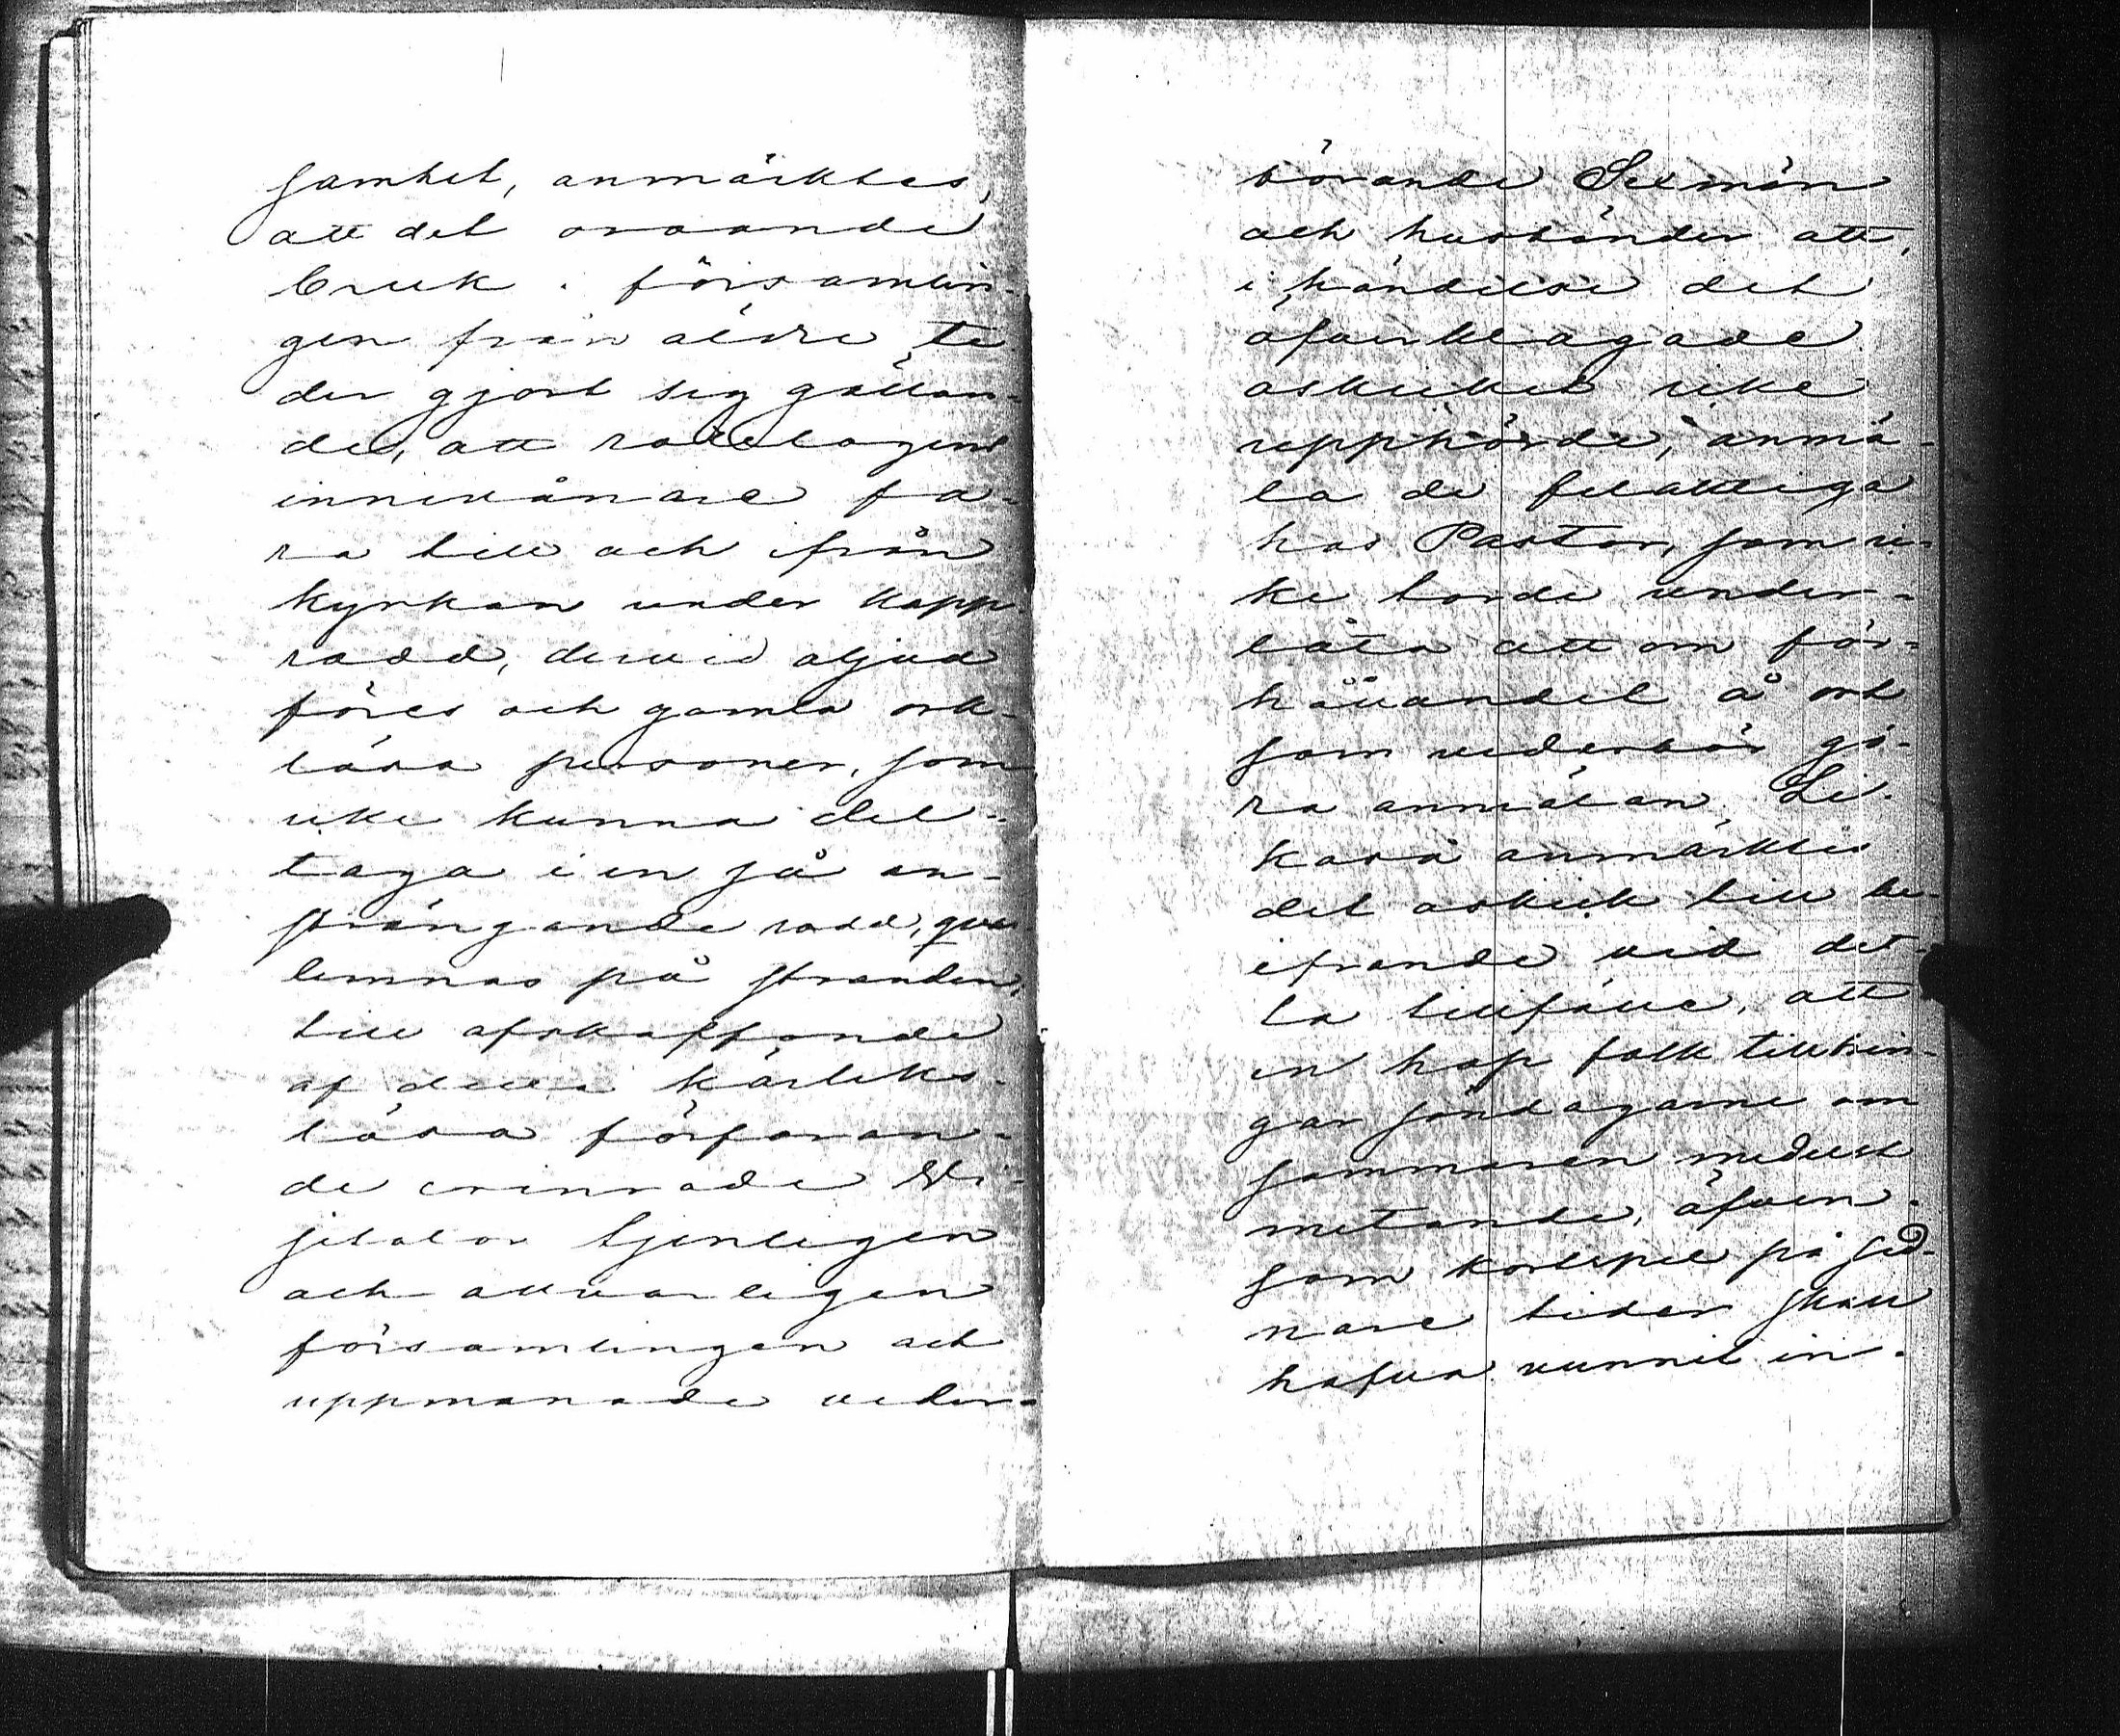 samhet, anmärktes,
att det oroande
bruk i församlin-
gen från äldre ti-
der gjort sig gällan-
de, att rotelagens
innevånare fa-
ra till och ifrån
kyrkan under kapp
rodd, dervid oljud
föres och gamla ork-
lösa personer, som
icke kunna del-
taga i en så an-
strängande rodd, qvar
lemnas på stranden,
till afskaffande
af detta kärleks-
lösa förfaran-
de erinrade Vi-
sitator tjenligen
och allvarligen
församlingen och
uppmanade veder-
börande Sexmän
och husbönder att,
i händelse det
öfverklagade
oskicket icke
upphörde, anmä-
la de felaktiga
hos Pastor, som ic-
ke borde under-
låta att om för-
hållandet å ort
som vederbör gö-
ra anmälan. Li-
kaså anmärktes
det oskick till be-
ifrande vid det-
ta tillfälle, att
en hop folk tillbrin-
gar söndagarne om
sommaren medelst
metande, äfven-
som kortspel på sed-
nare tider skall
hafva vunnit in-